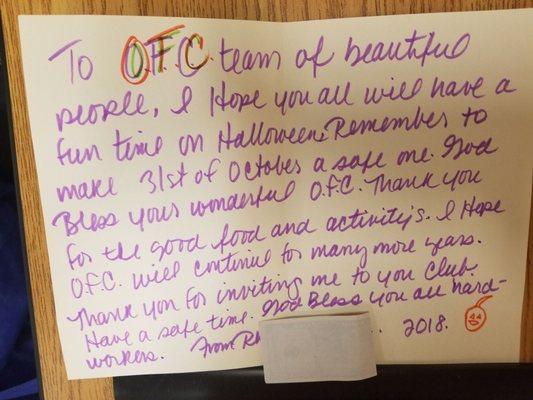 To O.F.C. team of beautiful
people, I Hope you all will have a
fun time on Halloween. Remember to
make 31st of October a safe one. God
Bless your wonderful O.F.C. Thank you
for the good food and activity's. I Hope
O.F.C. will continue for many more years.
Thank you for inviting me to you Club.
Have a safe time. God Bless you all hard-
workers. From 2018.